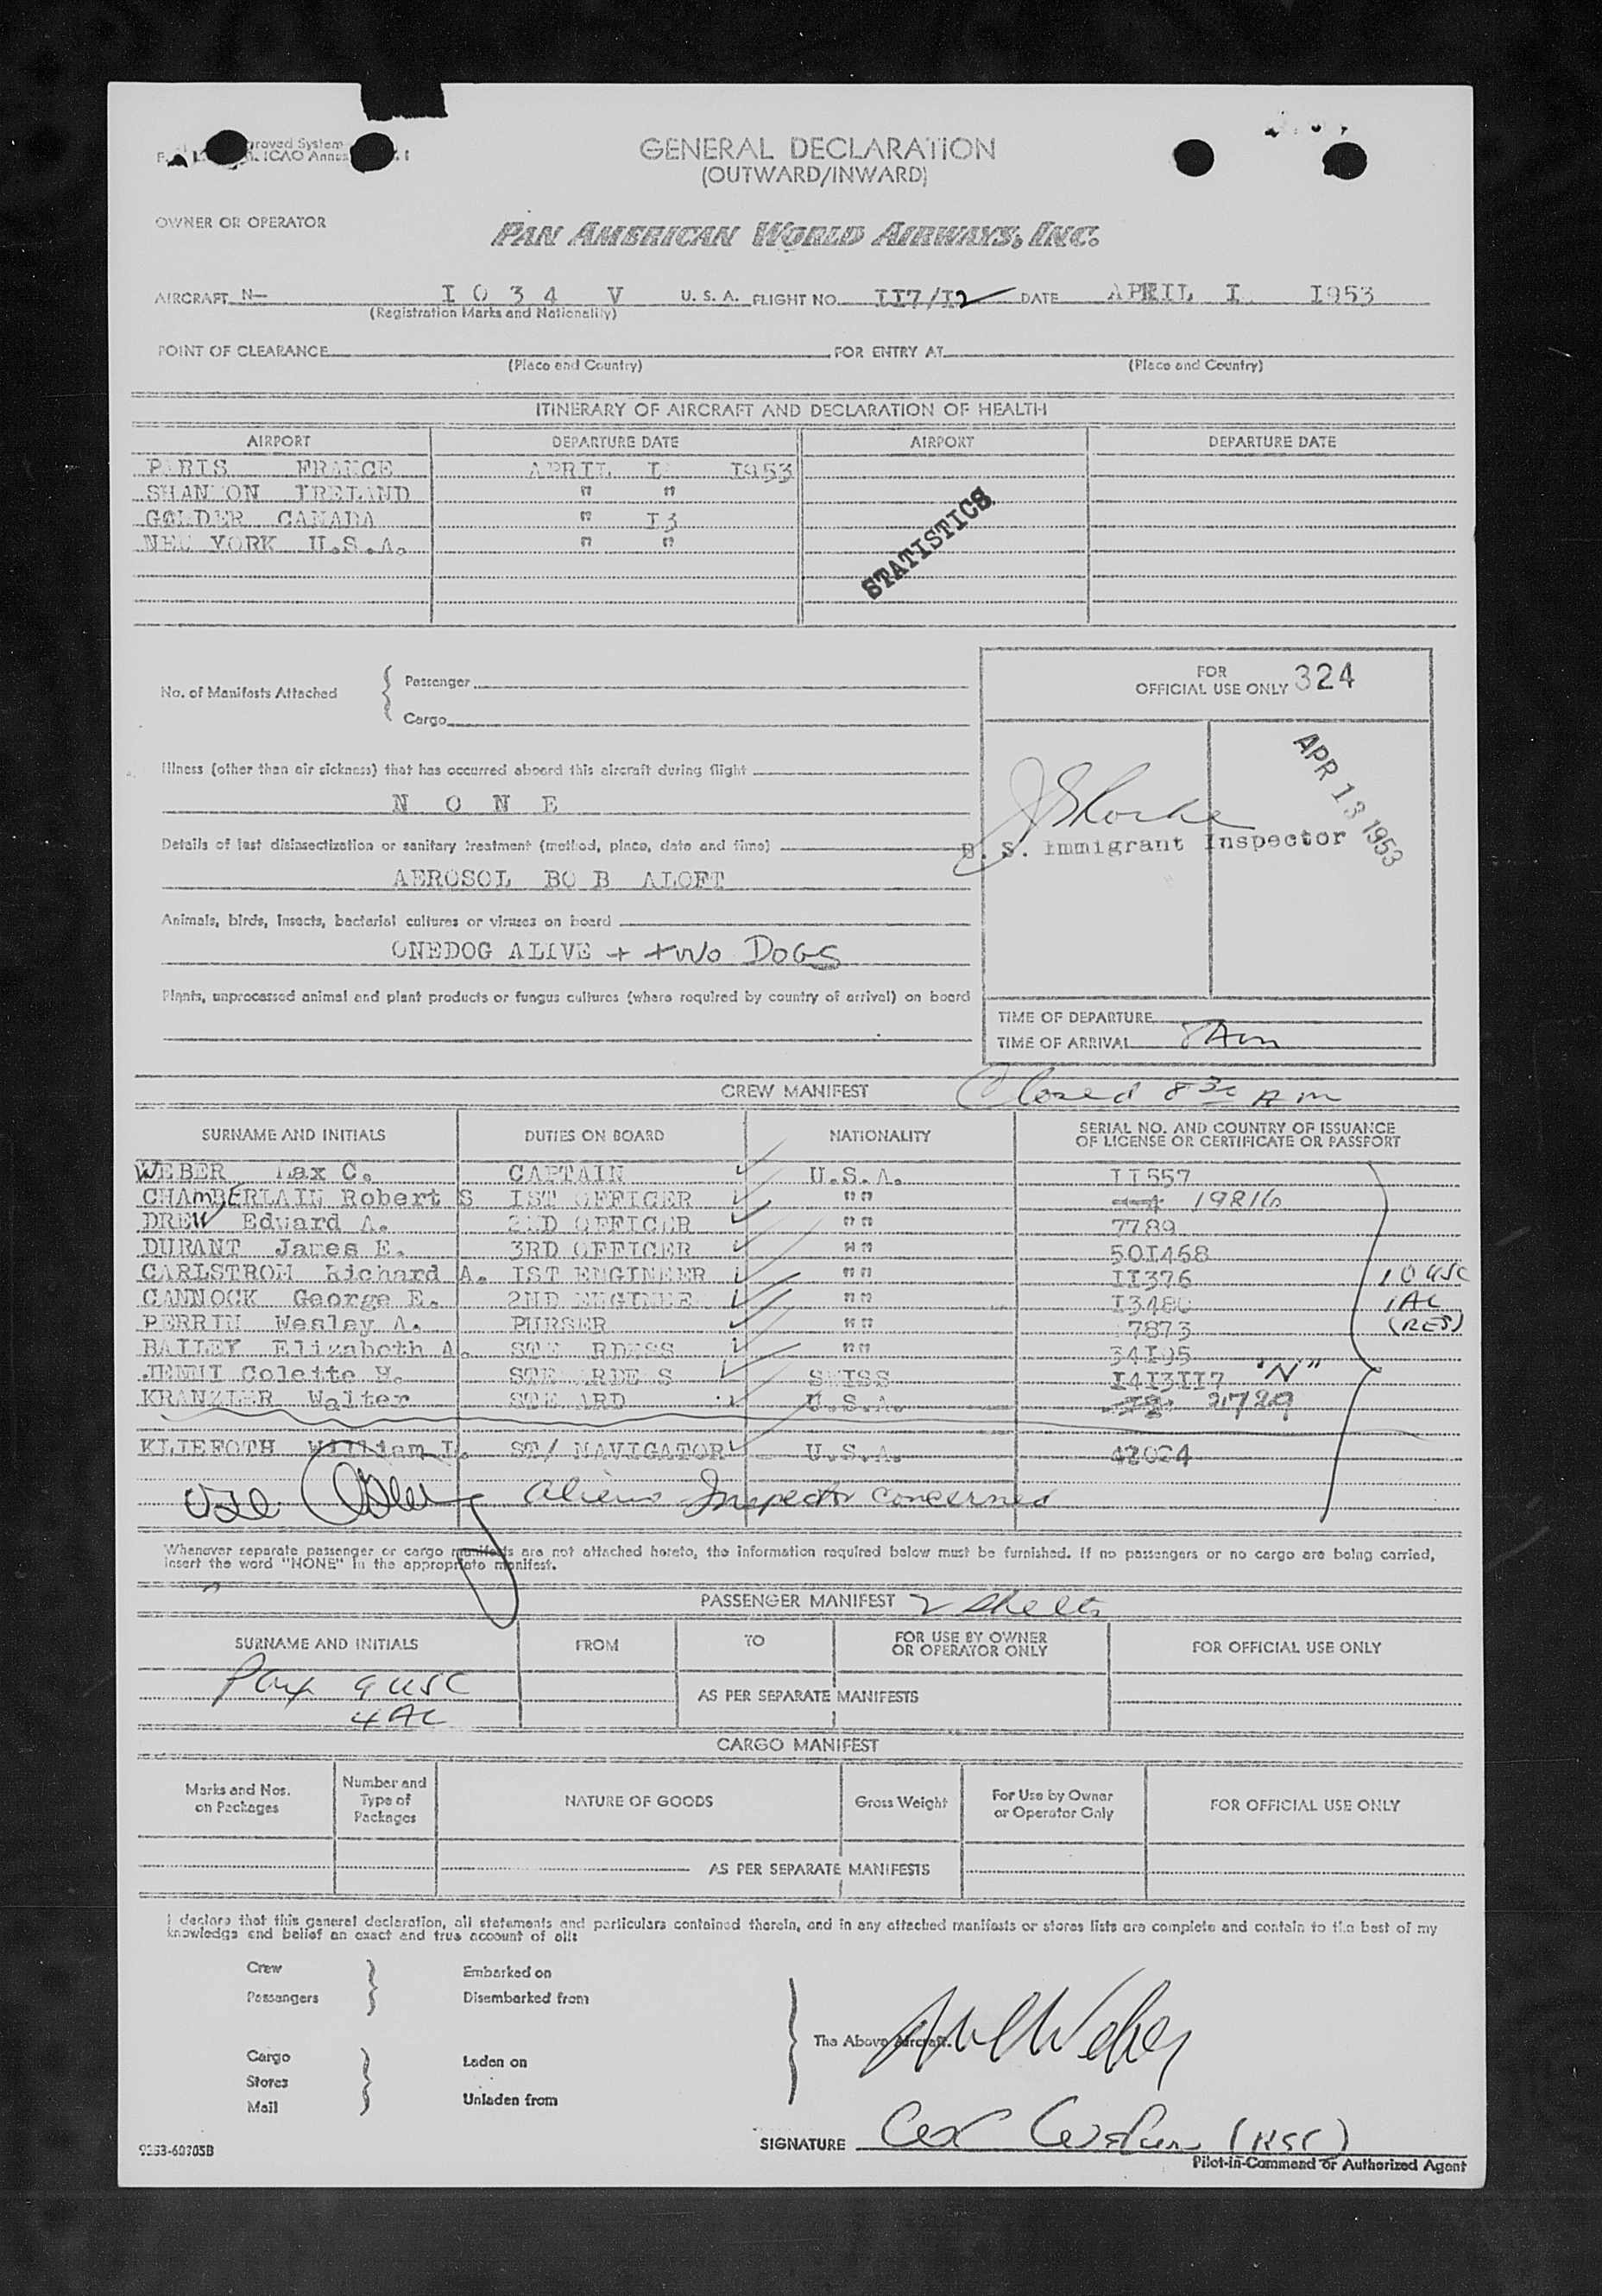 GENERAL DECLARATION
(OUTWARD/INWARD)
roved System
ICAO Annex
OWNER OR OPERATOR
PAN AMERICAN WORLD AIRWAYS, INC.
AIRCRAFT N- I O 3 4 V U. S. A. FLIGHT NO. II7/I2 DATE APRIL I I953
(Registration Marks and Nationality)
POINT OF CLEARANCE FOR ENTRY AT
(Place and Country) (Place and Country)
ITINERARY OF AIRCRAFT AND DECLARATION OF HEALTH
AIRPORT DEPARTURE DATE AIRPORT DEPARTURE DATE
PARIS FRANCE APRIL I I953
SHAN ON IRELAND " "
GOLDER CANADA " I3
NEW YORK U.S.A. " "
STATISTICS
No. of Manifests Attached { Passenger
Cargo
FOR
OFFICIAL USE ONLY 324
APR 13 1953
Illness (other than air sickness) that has occurred aboard this aircraft during flight
N O N E
U. S. Immigrant Inspector
Details of last disinsectization or sanitary treatment (method, place, date and time)
AEROSOL BO B ALOFT
Animals, birds, insects, bacterial cultures or viruses on board
ONEDOG ALIVE + two DOGS
Plants, unprocessed animal and plant products or fungus cultures (where required by country of arrival) on board
TIME OF DEPARTURE
TIME OF ARRIVAL 8 Am
CREW MANIFEST Closed 8 30 Am
SURNAME AND INITIALS DUTIES ON BOARD NATIONALITY SERIAL NO. AND COUNTRY OF ISSUANCE
OF LICENSE OR CERTIFICATE OR PASSPORT
WEBER Max C. CAPTAIN U.S.A. II557
CHAmBERLAIN Robert S IST OFFICER "" 19816
DREW Edward A. 2ND OFFICER "" 7789
DURANT James E. 3RD OFFICER "" 50I468
CARLSTROM Richard A. IST ENGINEER "" II376 10 USC
CANNOCK George E. 2ND ENGINEE "" I3480 1 AL
PERRIN Wesley A. PURSER "" 7873 (RES)
BAILEY Elizabeth A. STE RDESS "" 34I95
JENNI Colette H. STE ARDE S S ISS I4I3II7 "N"
KRANZLER Walter STE ARD U.S.A. 2729
KLIEFOTH William I. ST/ NAVIGATOR U.S.A. 42024
aliens Inspector concerned
Whenever separate passenger or cargo manifests are not attached hereto, the information required below must be furnished. If no passengers or no cargo are being carried,
insert the word "NONE" in the appropriate manifest.
PASSENGER MANIFEST 2 sheets
SURNAME AND INITIALS FROM TO FOR USE BY OWNER
OR OPERATOR ONLY FOR OFFICIAL USE ONLY
Pax 9 USC
AS PER SEPARATE MANIFESTS
4 AL
CARGO MANIFEST
Marks and Nos.
on Packages
Number and
Type of
Packages
NATURE OF GOODS Gross Weight For Use by Owner
or Operator Only FOR OFFICIAL USE ONLY
AS PER SEPARATE MANIFESTS
I declare that this general declaration, all statements and particulars contained therein, and in any attached manifests or stores lists are complete and contain to the best of my
knowledge and belief an exact and true account of all:
Crew Embarked on
Passengers Disembarked from
The Above Aircraft.
Cargo Laden on
Stores
Mail Unladen from
SIGNATURE
Pilot-in-Command or Authorized Agent
9253-60705B